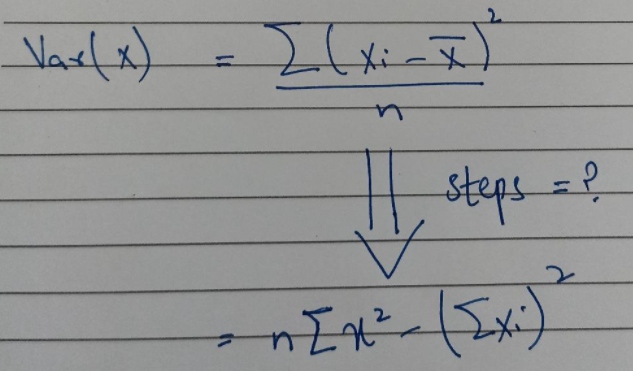 Var(x) = Σ(xi - x̄)²
n
steps = ?
= nΣx² - (Σxi)²